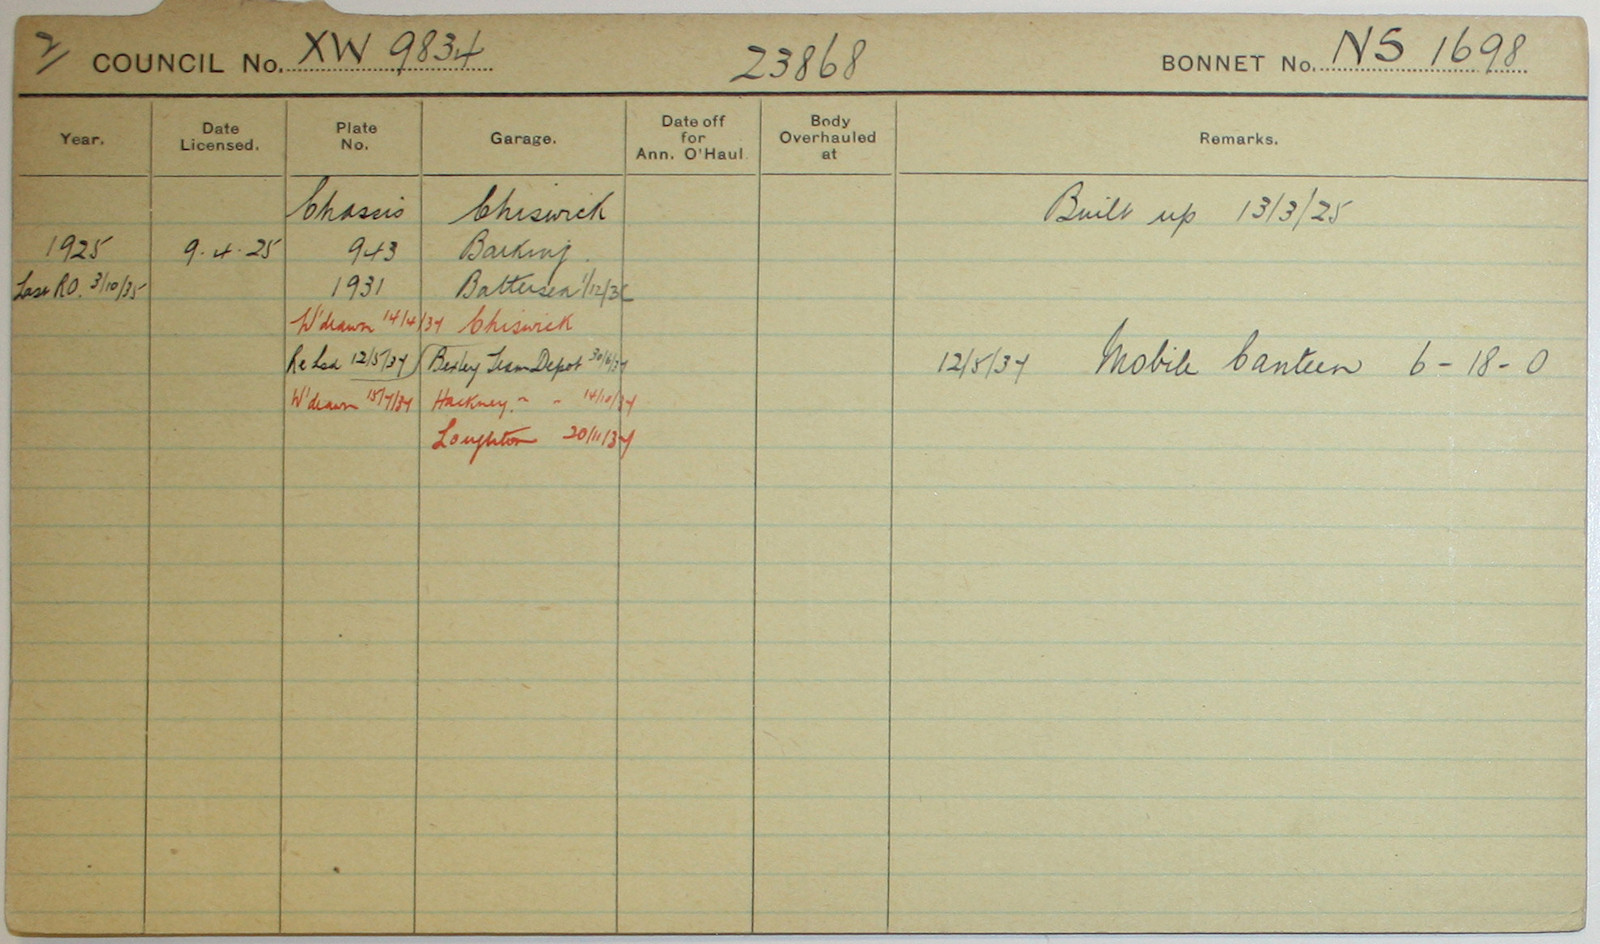 2/ COUNCIL No. XW 9834 23868 BONNET No. NS 1698
Year. Date Licensed. Plate No. Garage. Date off for Ann. O'Haul Body Overhauled at Remarks.
Chassis Chiswick Built up 13/3/25
1925 9.4.25 943 Barking.
Last RO. 3/10/35 1931 Battersea 1/12/36
W'drawn 14/4/37 Chiswick
Re Lsd 12/5/37 Bexley Tram Depot 30/6/37 12/5/37 Mobile Canteen 6-18-0
W'drawn 15/7/37 Hackney. - - 14/10/37
Loughton 20/11/37